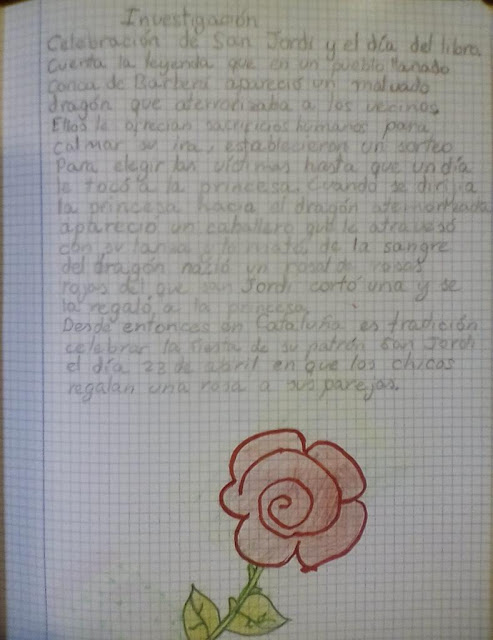 Investigación
Celebración de San Jordi y el día del libro
Cuenta la leyenda que en un pueblo llamado
Conca de Barberá apareció un malvado
dragón que aterrorizaba a los vecinos.
Ellos le ofrecían sacrificios humanos para
calmar su ira, establecieron un sorteo
Para elegir las víctimas hasta que un día
le tocó a la princesa. Cuando se dirijía
la princesa hacia el dragón atemorizada
apareció un caballero que le atravesó
con su lanza y lo mató, de la sangre
del dragón nació un rosal de rosas
rojas del que San Jordi cortó una y se
la regaló a la princesa.
Desde entonces en Cataluña es tradición
celebrar la fiesta de su patrón San Jordi
el día 23 de abril en que los chicos
regalan una rosa a sus parejas.